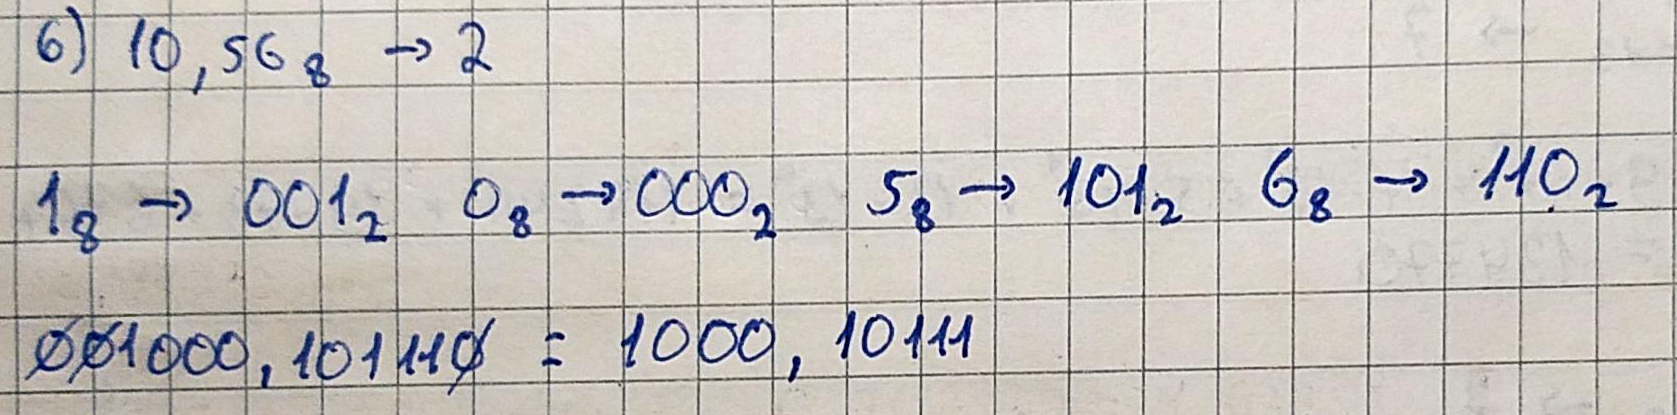 б) 10,56₈ → 2
1₈ → 001₂ 0₈ → 000₂ 5₈ → 101₂ 6₈ → 110₂
001000,101110 = 1000,10111